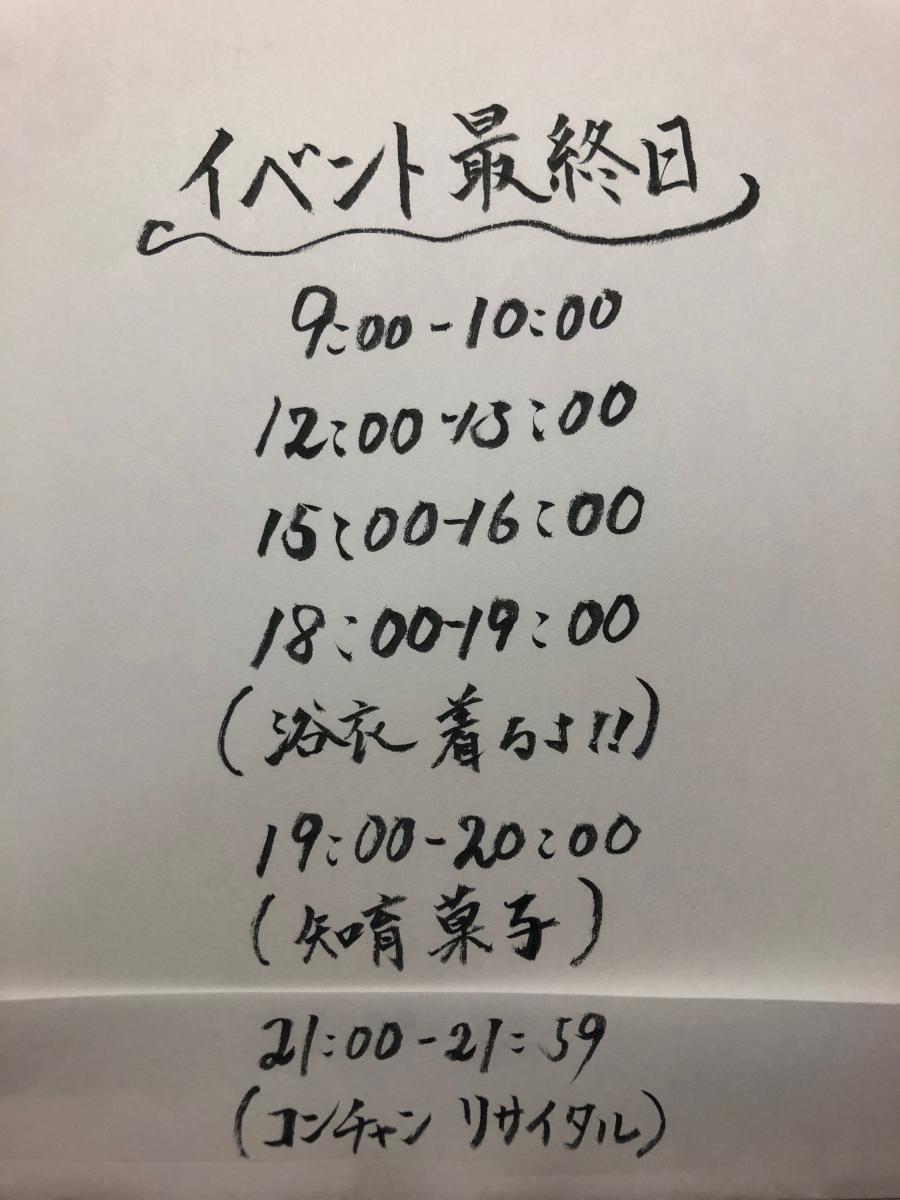 イベント最終日
9:00-10:00
12:00-13:00
15:00-16:00
18:00-19:00
(浴衣 着るよ!!)
19:00-20:00
(知育 菓子)
21:00-21:59
(コンチャン リサイタル)